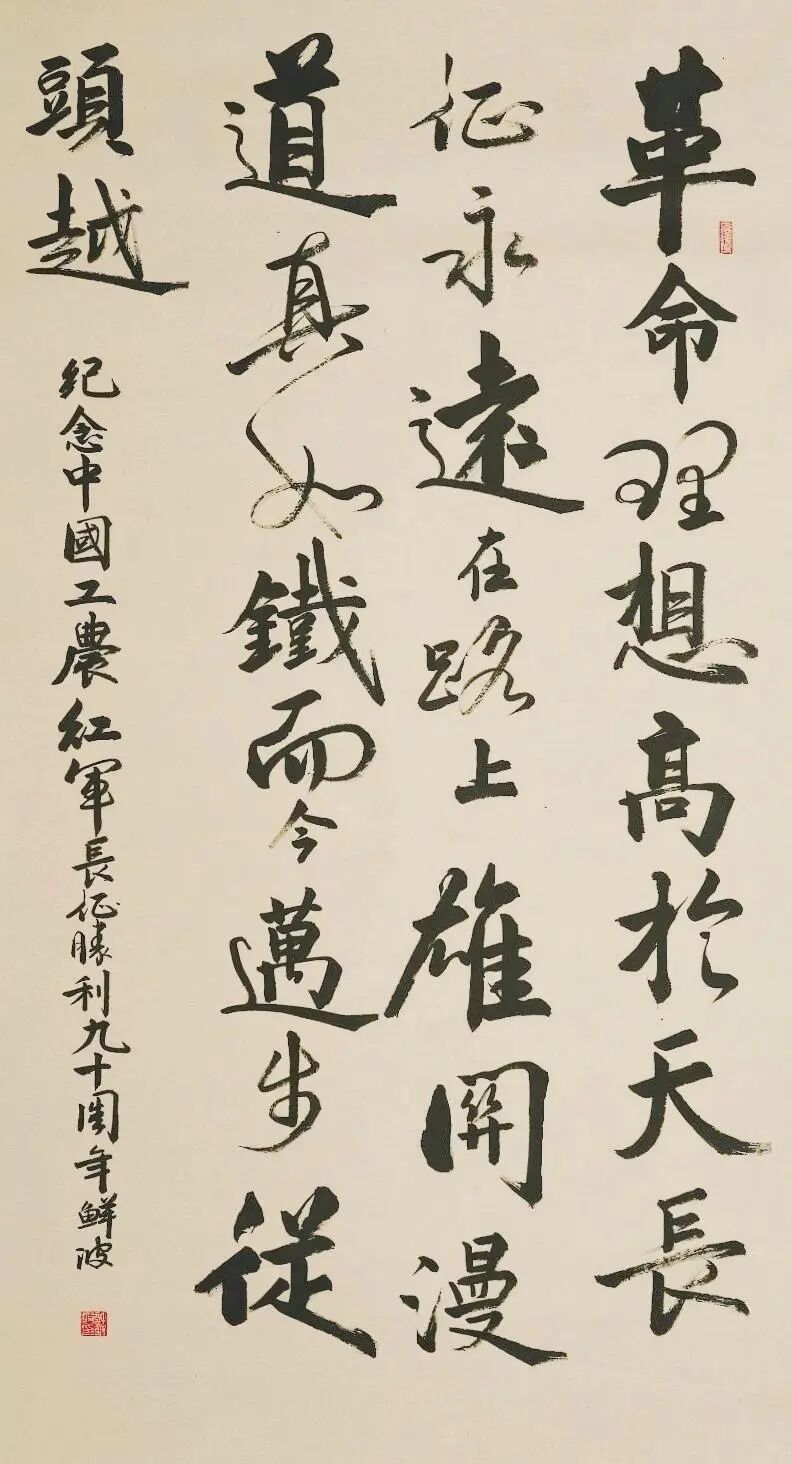 革命理想高於天長
征永遠在路上雄關漫
道真如鐵而今邁步從
頭越
紀念中國工農紅軍長征勝利九十周年鮮波